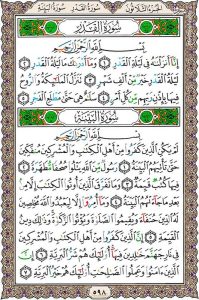 الجزء الثلاثون سورة القدر سورة البينة
سُورَةُ القَدْرِ
بِسْمِ اللَّهِ الرَّحْمَٰنِ الرَّحِيمِ
إِنَّآ أَنزَلْنَٰهُ فِى لَيْلَةِ ٱلْقَدْرِ ١ وَمَآ أَدْرَىٰكَ مَا لَيْلَةُ ٱلْقَدْرِ ٢
لَيْلَةُ ٱلْقَدْرِ خَيْرٌ مِّنْ أَلْفِ شَهْرٍ ٣ تَنَزَّلُ ٱلْمَلَٰٓئِكَةُ وَٱلرُّوحُ
فِيهَا بِإِذْنِ رَبِّهِم مِّن كُلِّ أَمْرٍ ٤ سَلَٰمٌ هِىَ حَتَّىٰ مَطْلَعِ ٱلْفَجْرِ ٥
سُورَةُ البَيِّنَةِ
بِسْمِ اللَّهِ الرَّحْمَٰنِ الرَّحِيمِ
لَمْ يَكُنِ ٱلَّذِينَ كَفَرُوا۟ مِنْ أَهْلِ ٱلْكِتَٰبِ وَٱلْمُشْرِكِينَ مُنفَكِّينَ
حَتَّىٰ تَأْتِيَهُمُ ٱلْبَيِّنَةُ ١ رَسُولٌ مِّنَ ٱللَّهِ يَتْلُوا۟ صُحُفًا مُّطَهَّرَةً ٢
فِيهَا كُتُبٌ قَيِّمَةٌ ٣ وَمَا تَفَرَّقَ ٱلَّذِينَ أُوتُوا۟ ٱلْكِتَٰبَ إِلَّا مِنۢ
بَعْدِ مَا جَآءَتْهُمُ ٱلْبَيِّنَةُ ٤ وَمَآ أُمِرُوٓا۟ إِلَّا لِيَعْبُدُوا۟ ٱللَّهَ مُخْلِصِينَ
لَهُ ٱلدِّينَ حُنَفَآءَ وَيُقِيمُوا۟ ٱلصَّلَوٰةَ وَيُؤْتُوا۟ ٱلزَّكَوٰةَ وَذَٰلِكَ دِينُ
ٱلْقَيِّمَةِ ٥ إِنَّ ٱلَّذِينَ كَفَرُوا۟ مِنْ أَهْلِ ٱلْكِتَٰبِ وَٱلْمُشْرِكِينَ
فِى نَارِ جَهَنَّمَ خَٰلِدِينَ فِيهَآ أُو۟لَٰٓئِكَ هُمْ شَرُّ ٱلْبَرِيَّةِ ٦ إِنَّ
ٱلَّذِينَ ءَامَنُوا۟ وَعَمِلُوا۟ ٱلصَّٰلِحَٰتِ أُو۟لَٰٓئِكَ هُمْ خَيْرُ ٱلْبَرِيَّةِ ٧
٥٩٨